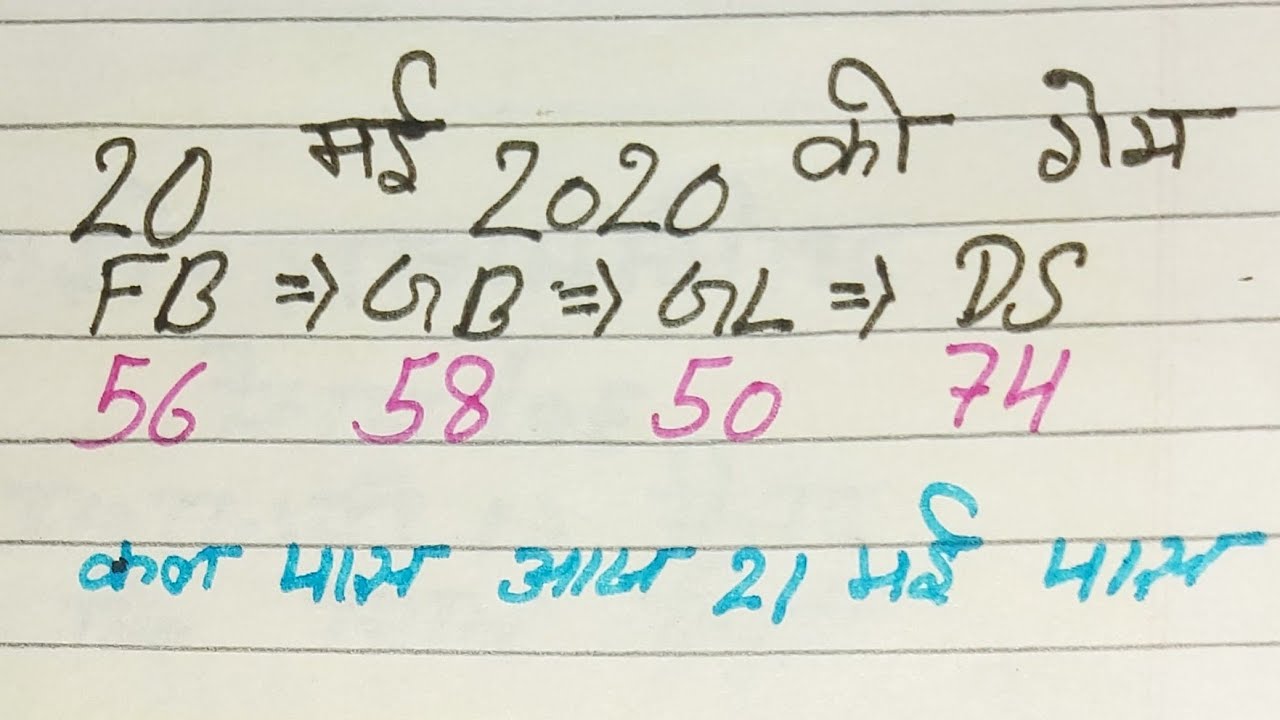 20 मई 2020 की गेम
FB => GB => GL => DS
56 58 50 74
कल पास आज 21 मई पास